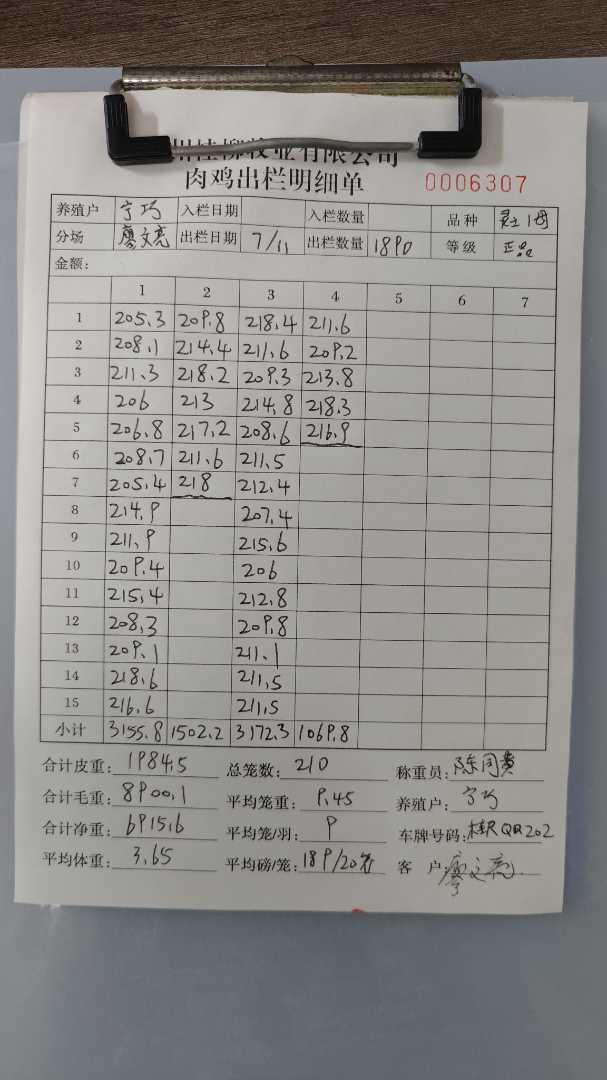 桂柳牧业有限公司
肉鸡出栏明细单 0006307
养殖户 宁巧 入栏日期 入栏数量 品种
分场 廖文亮 出栏日期 7/11 出栏数量 1890 等级 正品
金额:
1 2 3 4 5 6 7
1 205.3 209.8 218.4 211.6
2 208.1 214.4 211.6 209.2
3 211.3 218.2 209.3 213.8
4 206 213 214.8 218.3
5 206.8 217.2 208.6 216.9
6 208.7 211.6 211.5
7 205.4 218 212.4
8 214.9 207.4
9 211.9 215.6
10 209.4 206
11 215.4 212.8
12 208.3 209.8
13 209.1 211.1
14 218.6 211.5
15 216.6 211.5
小计 3155.8 1502.2 3172.3 1069.8
合计皮重: 1984.5 总笼数: 210 称重员:
合计毛重: 8900.1 平均笼重: 9.45 养殖户: 宁巧
合计净重: 6915.6 平均笼/羽: 9 车牌号码: 桂R QR202
平均体重: 3.65 平均磅/笼: 189/20 客户: 廖文亮